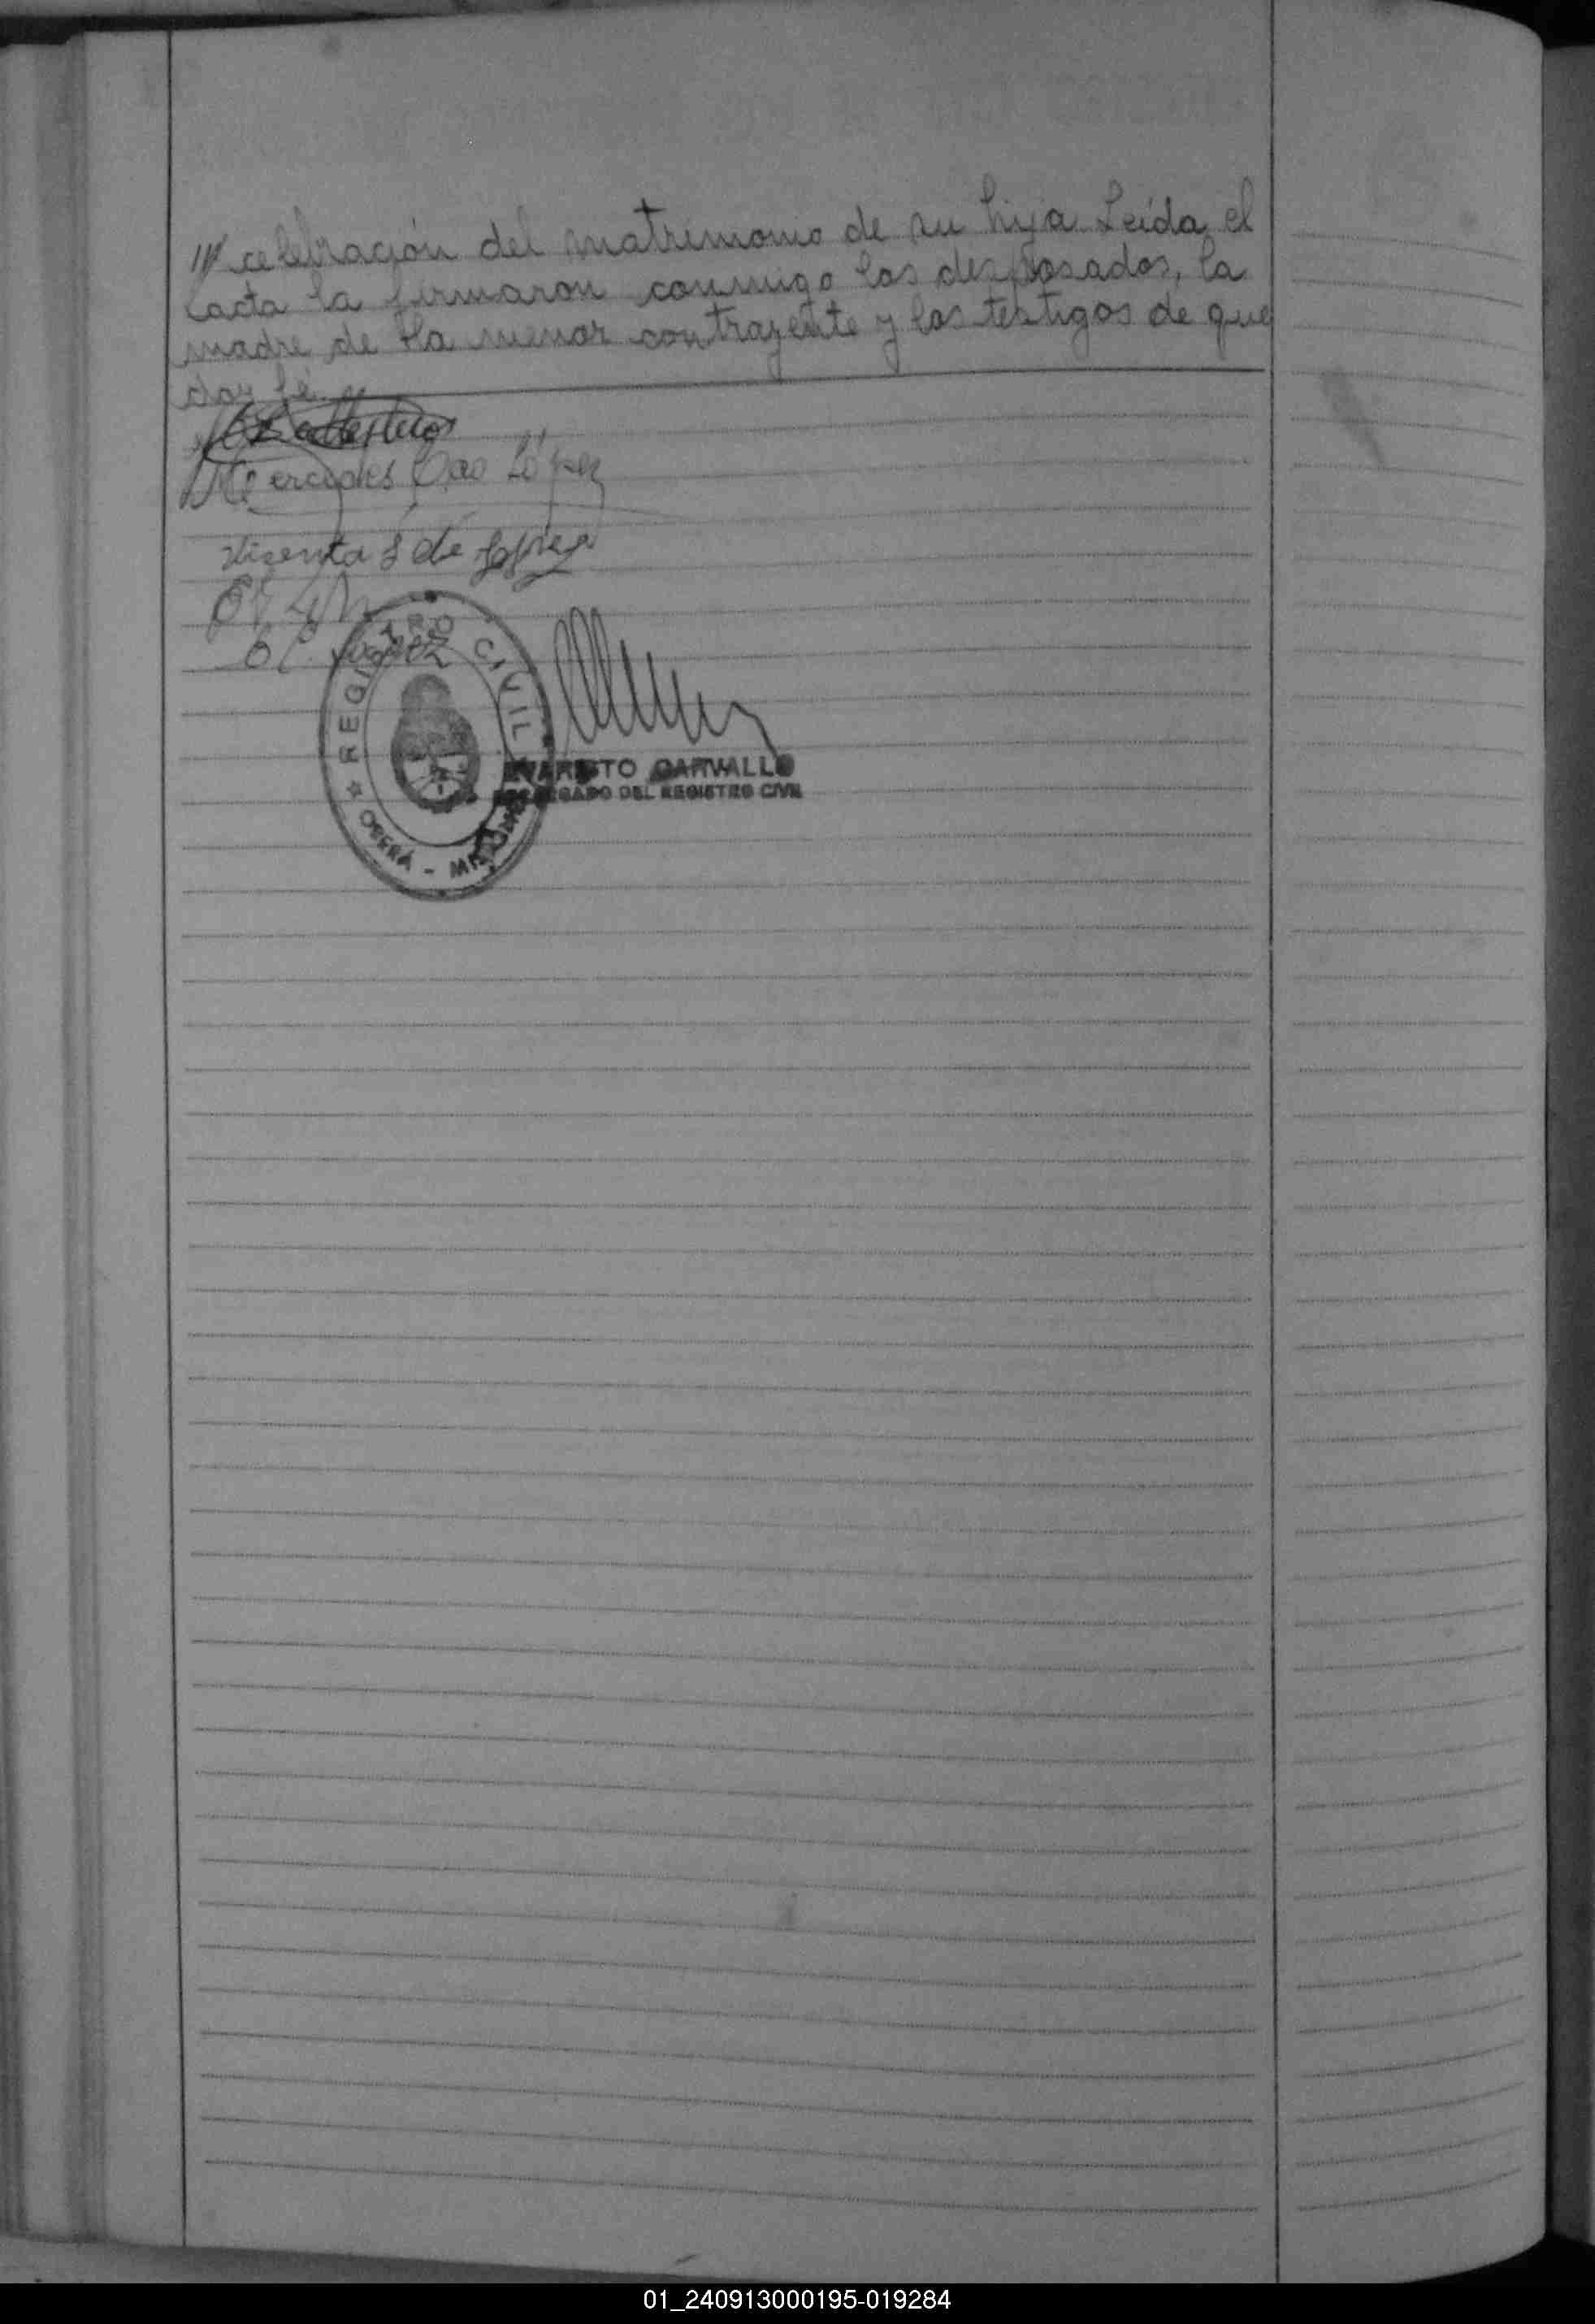 celebración del matrimonio de su hija. Leída el
acta la firmaron conmigo los desposados, la
madre de la menor contrayente y los testigos de que
doy fé.
Ballesteros
Mercedes López
Vicenta S de López
REGISTRO CIVIL
OBERÁ - MISIONES
EVARISTO CARVALLO
ENCARGADO DEL REGISTRO CIVIL
01_240913000195-019284